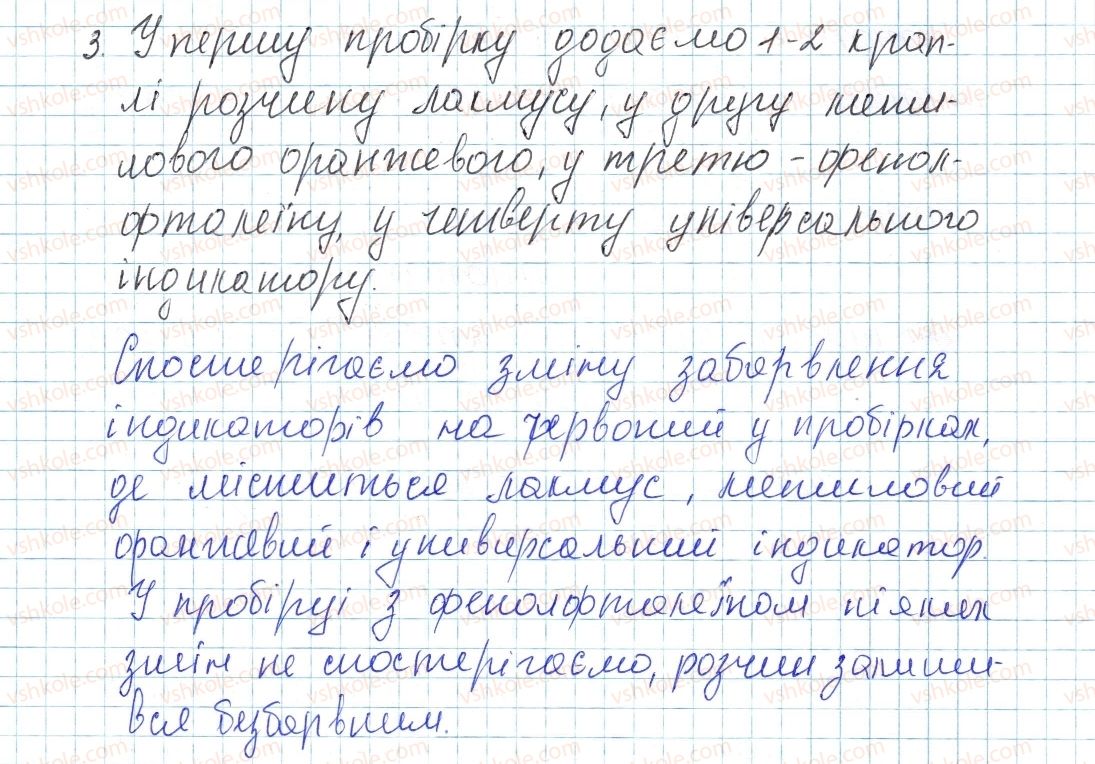 3. У першу пробірку додаємо 1-2 крап-
лі розчину лакмусу, у другу мети-
лового оранжевого, у третю - фенол-
фталеїну, у четверту універсального
індикатору.
Спостерігаємо зміну забарвлення
індикаторів на червоний у пробірках,
де міститься лакмус, метиловий
оранжевий і универсальний індикатор.
У пробірці з фенолфталеїном ніяких
змін не спостерігаємо, розчин залиши-
вся безбарвним.